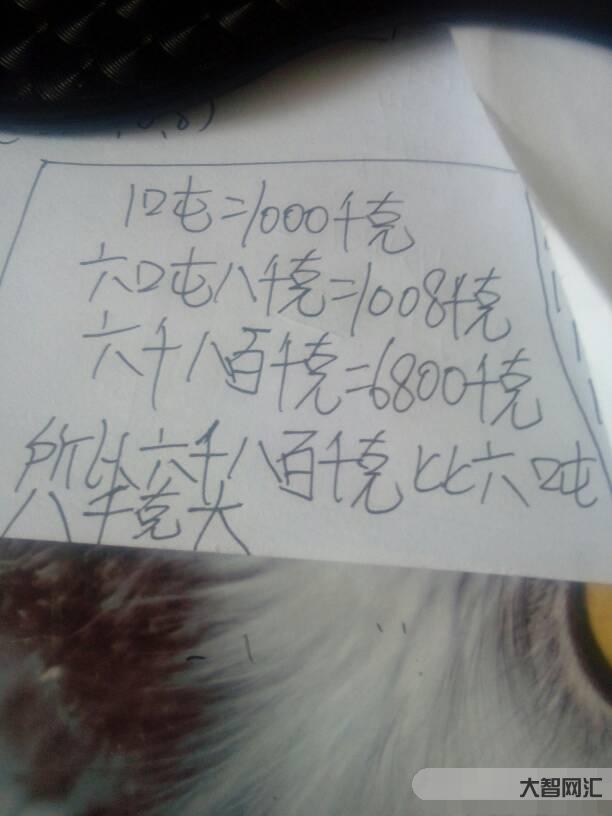 1吨=1000千克
六吨八千克=1008千克
六千八百千克=6800千克
所以六千八百千克比六吨
八千克大
大智网汇